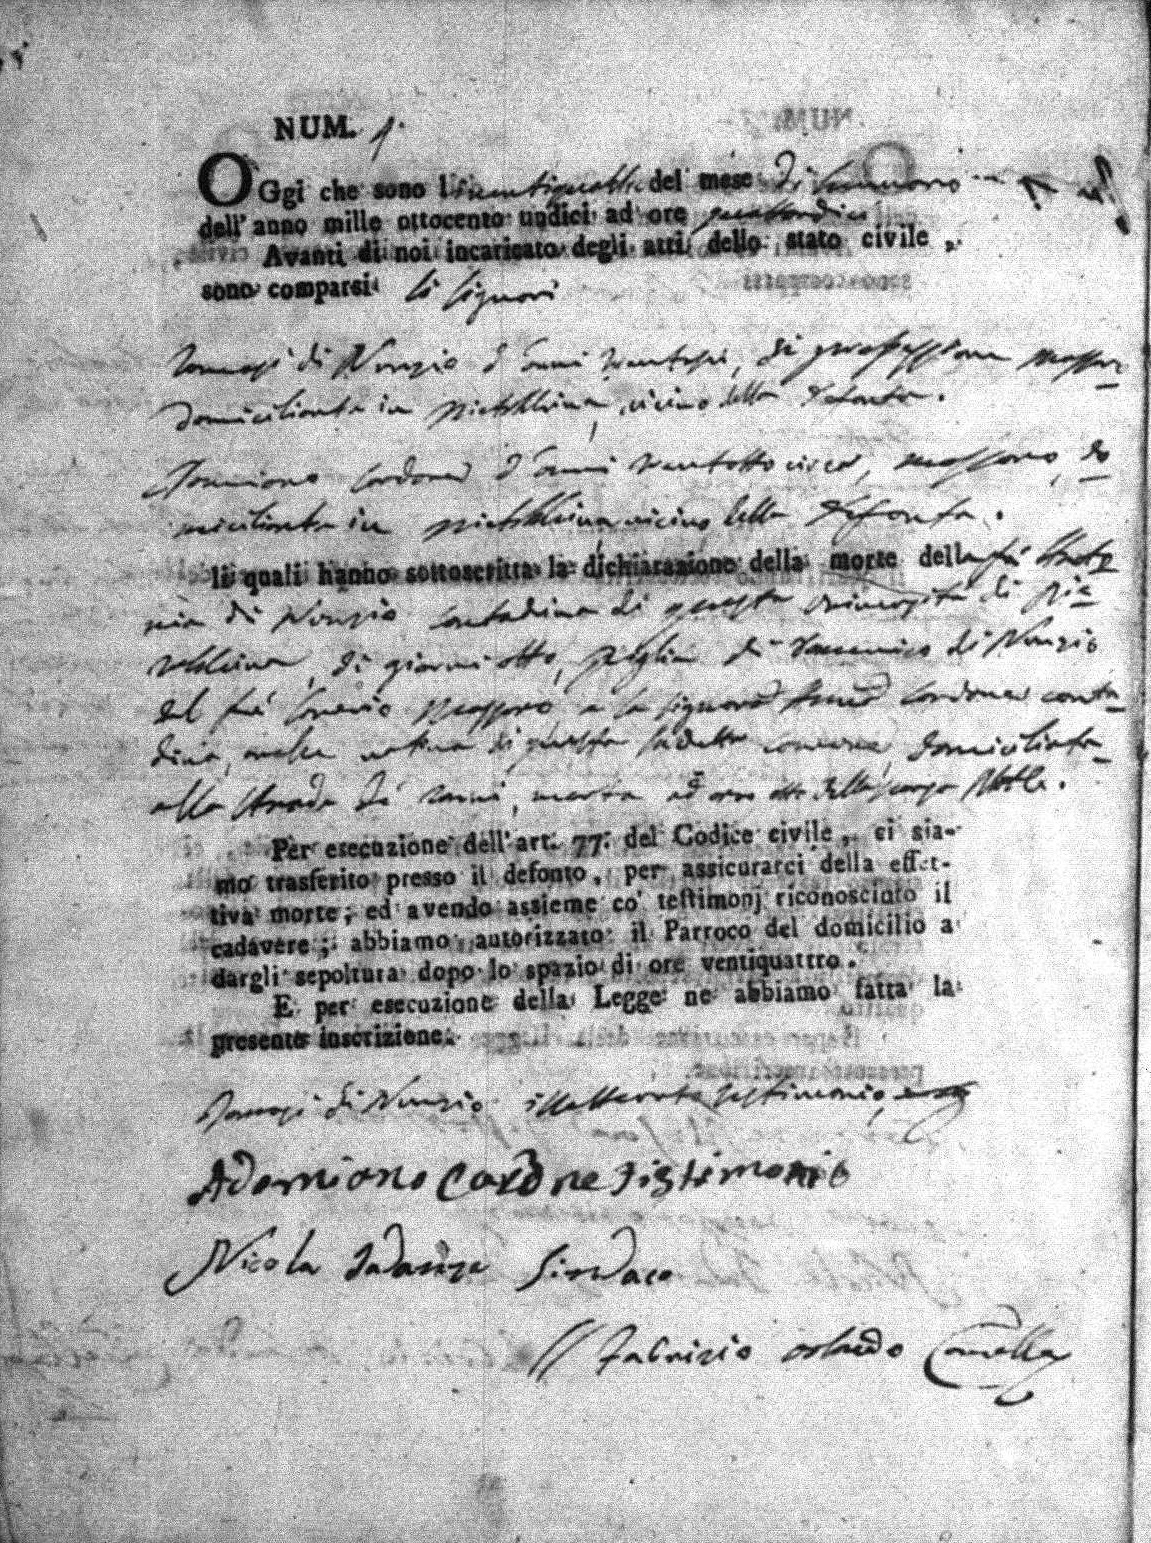 NUM. 1.
OGgi che sono li ventiquattro del mese di Gennaro
dell' anno mille ottocento undici ad ore quattordici
Avanti di noi incaricato degli atti dello stato civile,
sono comparsi li Signori
di Nunzio d'anni ventisei, di professione massaro
domiciliante in Pietrabbina, vicino della defonta.
Adamiano Cardone d'anni ventotto circa, massaro, do
miciliante in Pietrabbina vicino della defonta.
li quali hanno sottoscritta la dichiarazione della morte della fu
di Nunzio contadina di questa di Pie
di giorni otto, figlia di Domenico di Nunzio
del fu massaro, e la Signora Cardone conta
dina, anche nativa di questa sudetta comune, domiciliante
alla strada di morta ad ore otto della scorsa notte.
Per esecuzione dell' art. 77. del Codice civile, ci sia-
mo trasferito presso il defonto, per assicurarci della effet-
tiva morte; ed avendo assieme co' testimonj riconosciuto il
cadavere; abbiamo autorizzato il Parroco del domicilio a
dargli sepoltura dopo lo spazio di ore ventiquattro.
E per esecuzione della Legge ne abbiamo fatta la
presente inscrizione.
di Nunzio illetterato testimonio
Adamiano Cardone Tistimonio
Nicola Iadanza Sindaco
Fabrizio Orlando Cancelliere